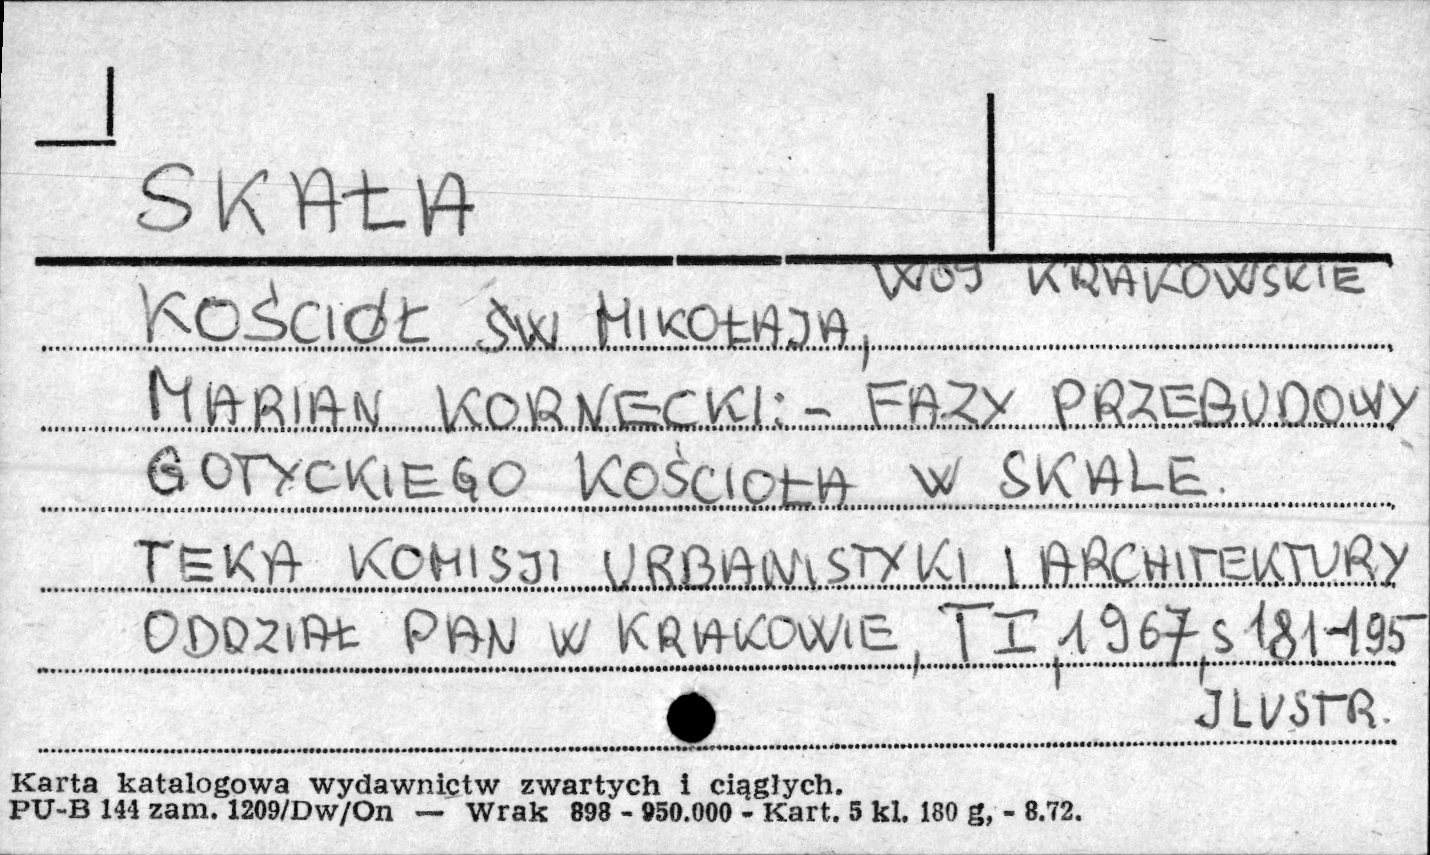 SKAŁA
WOJ KRAKOWSKIE
KOŚCIÓŁ ŚW MIKOŁAJA,
MARIAN KORNECKI: – FAZY PRZEBUDOWY
GOTYCKIEGO KOŚCIOŁA W SKALE.
TEKA KOMISJI URBANISTYKI I ARCHITEKTURY
ODDZIAŁ PAN W KRAKOWIE, T I, 1967, S 181-195
JLUSTR.
Karta katalogowa wydawnictw zwartych i ciągłych.
PU-B 144 zam. 1209/Dw/On — Wrak 898 - 950.000 - Kart. 5 kl. 180 g, - 8.72.